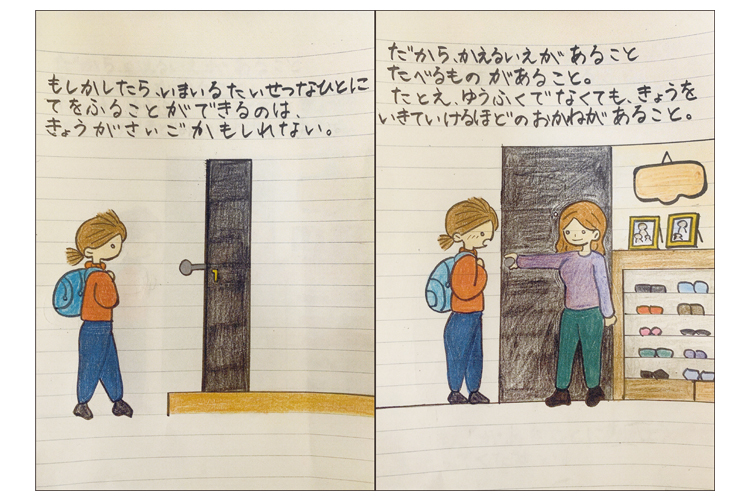 もしかしたら、いまいるたいせつなひとに
てをふることができるのは、
きょうがさいごかもしれない。
だから、かえるいえがあること
たべるものがあること。
たとえ、ゆうふくでなくても、きょうを
いきていけるほどのおかねがあること。